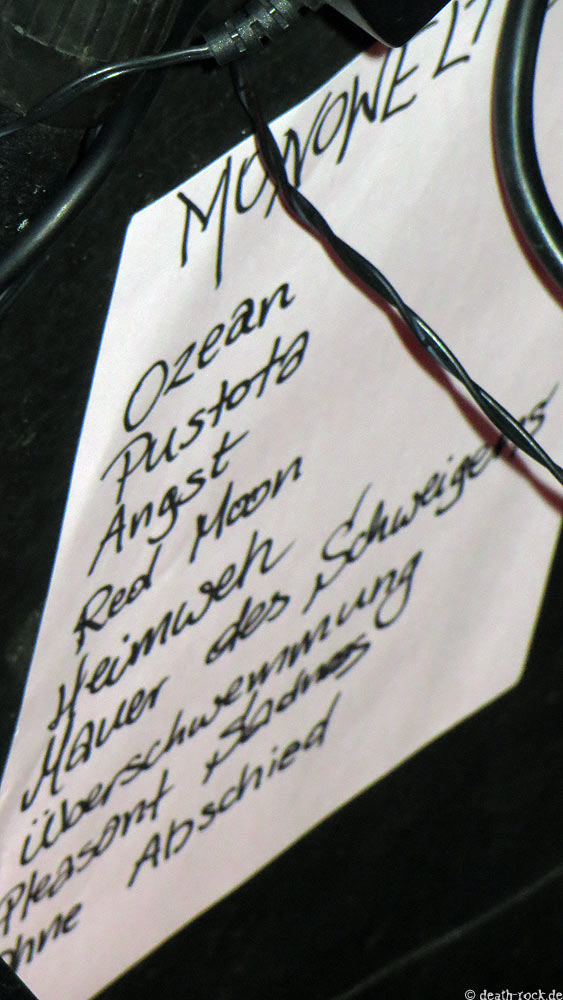 MONOWELT
Ozean
Pustota
Angst
Red Moon
Heimweh
Mauer des Schweigens
Überschwemmung
Pleasant Sadness
Ohne Abschied
© death-rock.de